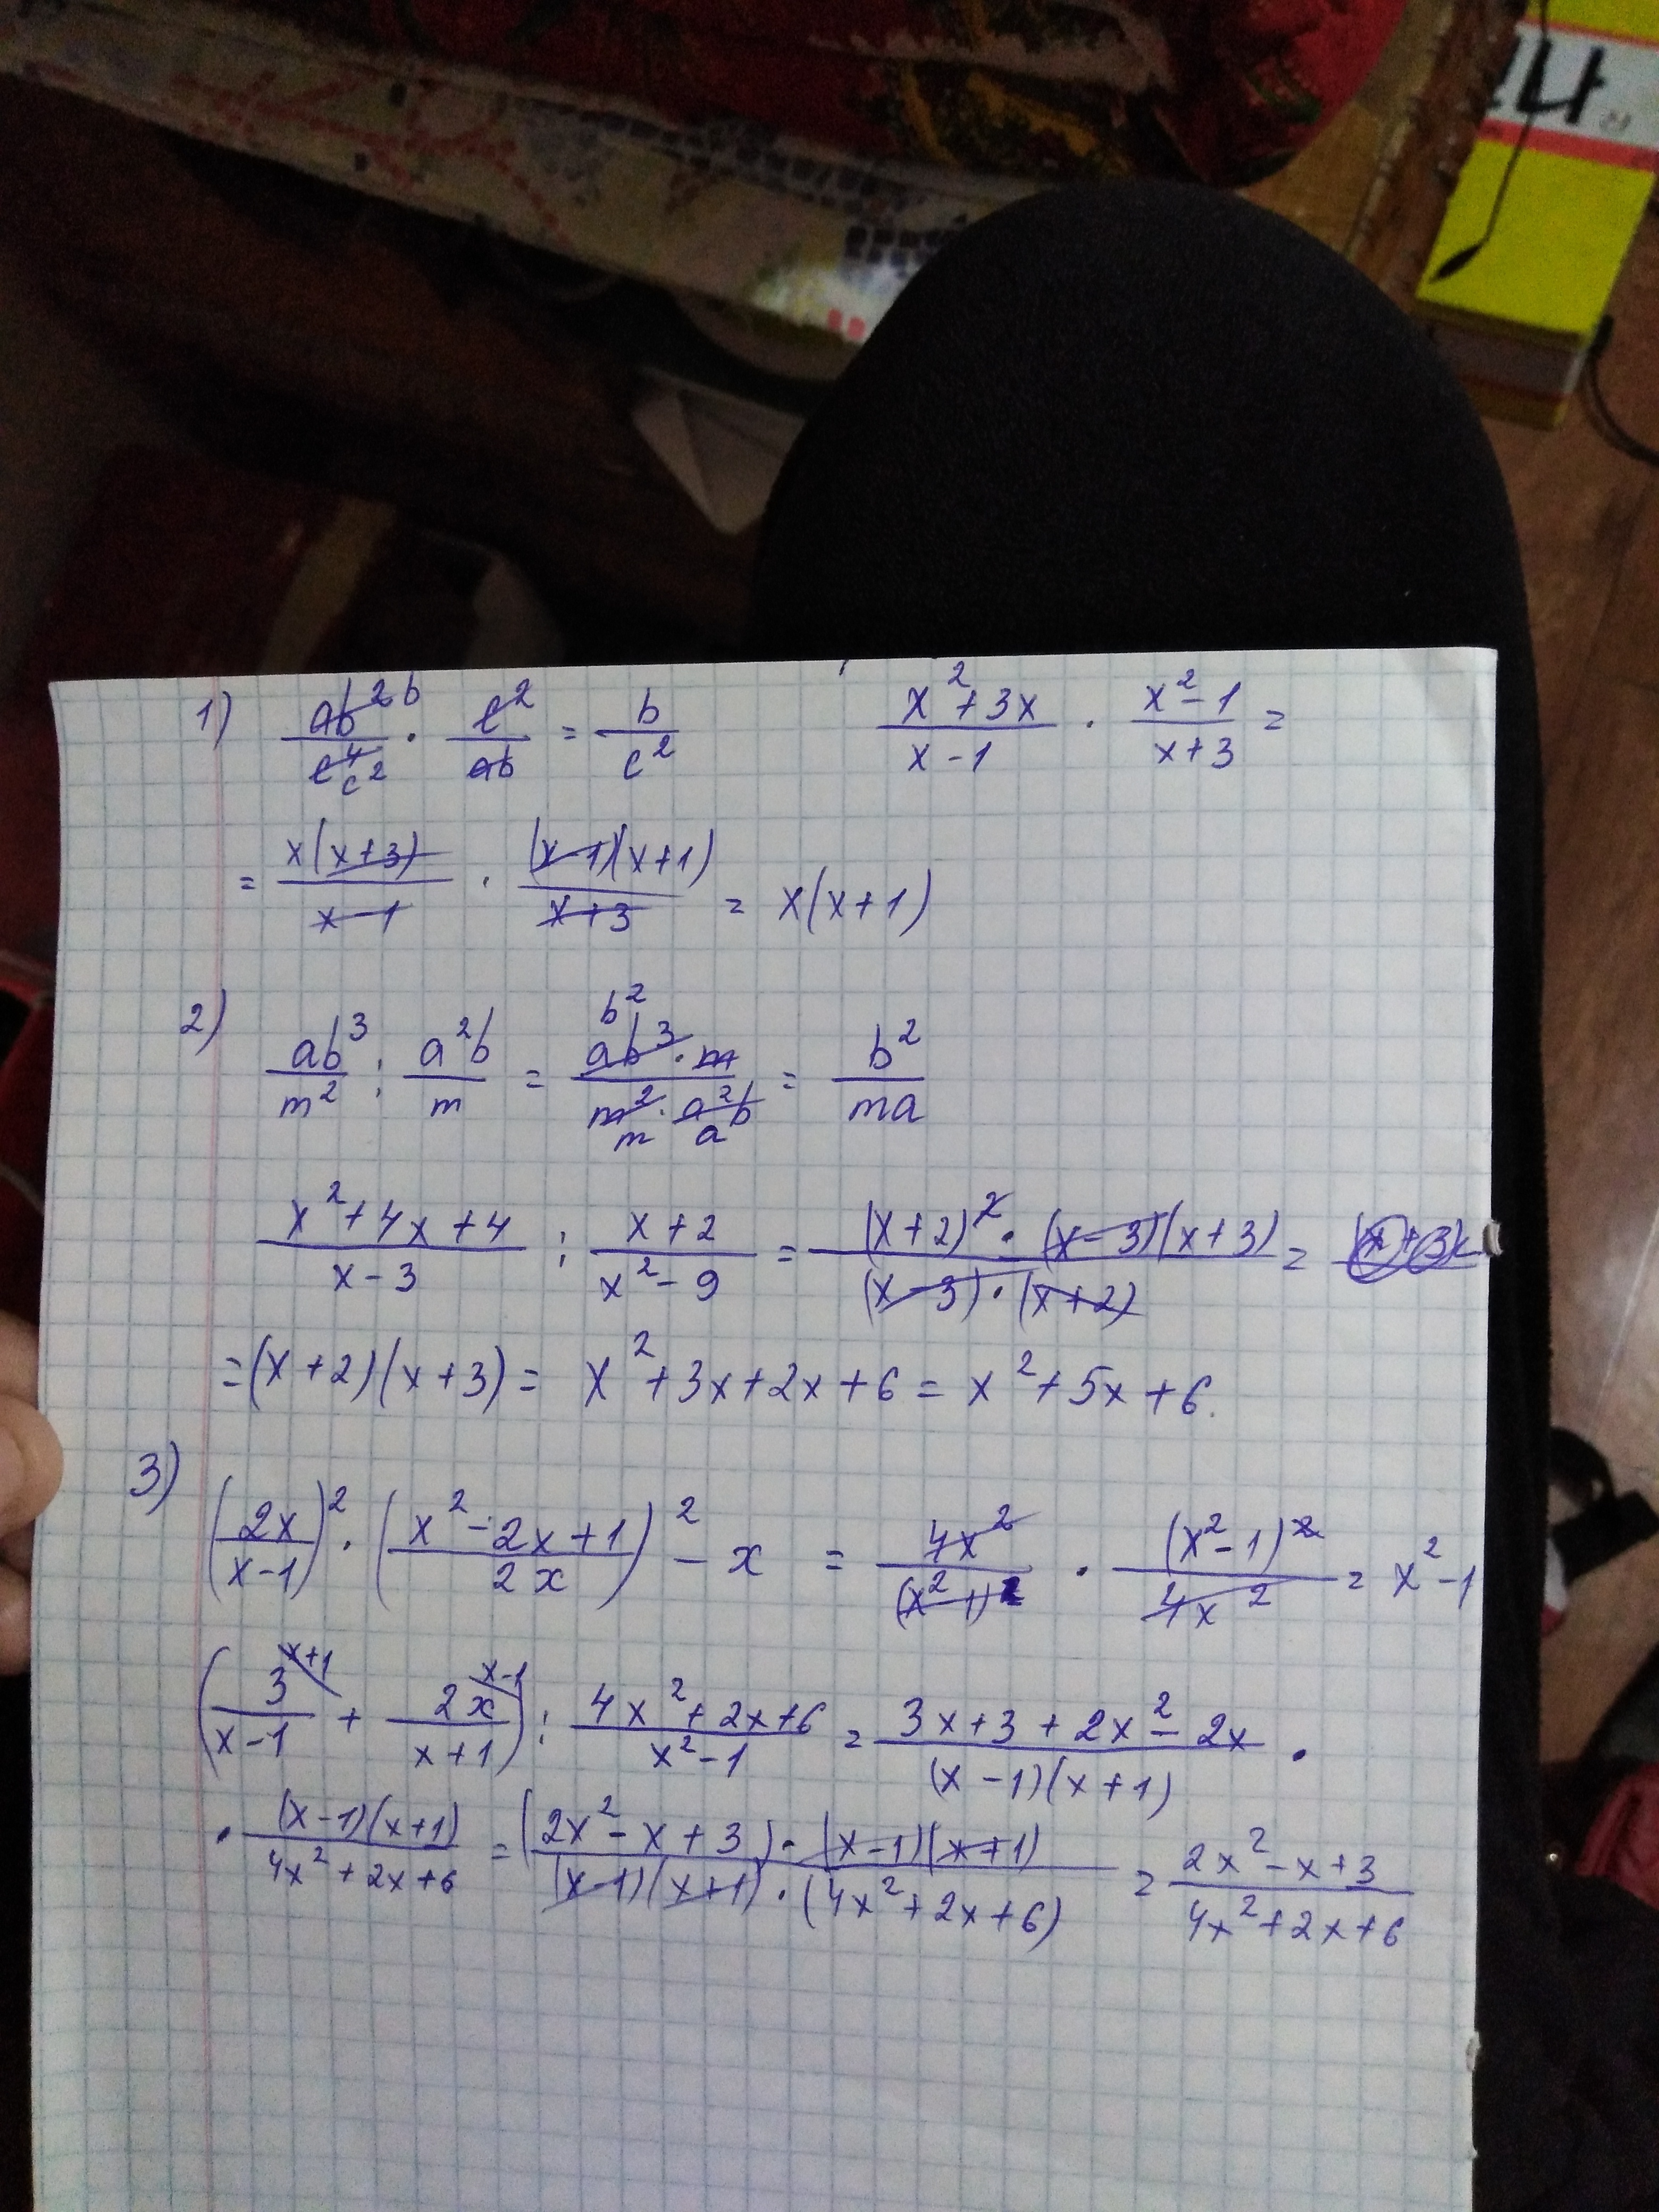 1) ab²/c⁴ · c²/ab = b/c²    (x²+3x)/(x-1) · (x²-1)/(x+3) =
= x(x+3)/(x-1) · (x-1)(x+1)/(x+3) = x(x+1)
2) ab³/m² : a²b/m = ab³·m/(m²·a²b) = b²/ma
(x²+4x+4)/(x-3) : (x+2)/(x²-9) = (x+2)²·(x-3)(x+3)/((x-3)·(x+2)) =
= (x+2)(x+3) = x²+3x+2x+6 = x²+5x+6.
3) (2x/(x-1))² · ((x²-2x+1)/2x)² - x = 4x²/(x²-1)² · (x²-1)²/4x² = x²-1
(3/(x-1) + 2x/(x+1)) : (4x²+2x+6)/(x²-1) = (3x+3+2x²-2x)/((x-1)(x+1)) ·
· (x-1)(x+1)/(4x²+2x+6) = (2x²-x+3)·(x-1)(x+1)/((x-1)(x+1)·(4x²+2x+6)) = (2x²-x+3)/(4x²+2x+6)